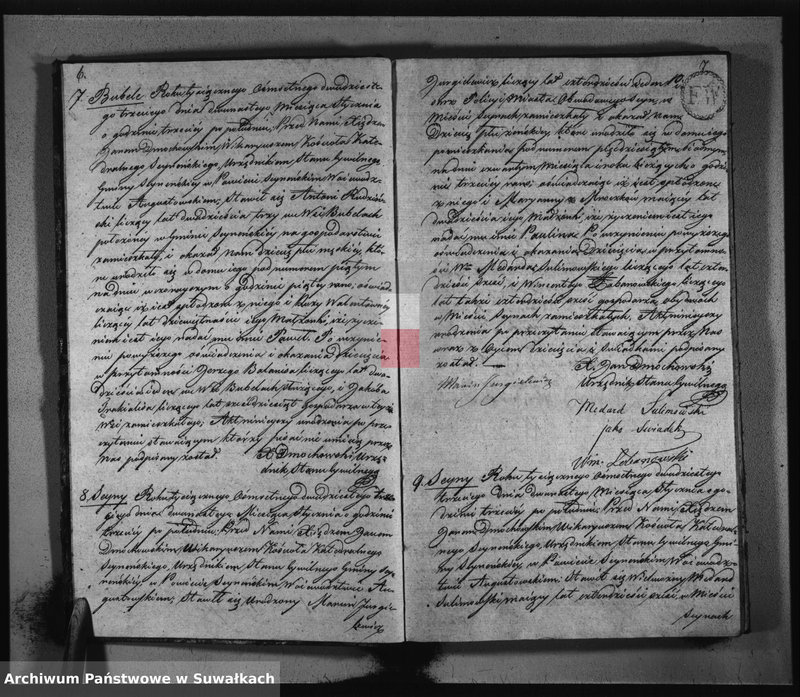 6.
7. Bubele Roku tysiącznego Osmsetnego dwudzieste-
go trzeciego dnia dwunastego Miesiąca Stycznia
o godzinie trzeciey po południu, Przed Nami, Xiędzem
Janem Dmochowskim Wikaryuszem Kościoła Kate-
dralnego Seynenskiego, Urzędnikiem Stanu Cywilnego
Gminy Seynenskiey w Powiecie Seynenskim Woiewodz-
twie Augustowskiem, Stawił się Antoni
liczący lat dwadzieścia trzy we Wsi Bubelach
położoney w Gminie Seynenskiey na gospodarstwie
zamieszkały, i okazał Nam dziecię płci męskiey, któ-
re urodziło się w domu iego pod numerem piątym
na dniu wczorayszym o godzinie piątey rano, oświad-
czaiąc iż iest spłodzone z niego i
liczącey lat dziewiętnaście iego Małżonki, iż życze-
niem iest iego nadać mu imie Paweł. Po uczynie-
niu powyższego oświadczenia i okazaniu dziecięcia
w przytomności Jerzego Balansa liczącego lat dwa-
dzieścia ieden we Wsi Bubelach i Jakuba
liczącego lat Gospodarza w teyże
Wsi zamieszkałego; Akt ninieyszy urodzenia po prze-
czytaniu stawaiącym którzy pisać nie umieią przez
Nas podpisany został. X. Dmochowski Urzę-
dnik Stanu Cywilnego
8. Seyny Roku tysiącznego Osmsetnego dwudziestego trze-
ciego dnia dwunastego Miesiąca Stycznia o godzinie
trzeciey po południu, Przed Nami, Xiędzem Janem
Dmochowskim Wikaryuszem Kościoła Katedralnego
Seynenskiego, Urzędnikiem Stanu Cywilnego Gminy Sey-
nenskiey, w Powiecie Seynenskim Woiewodztwie Au-
gustowskiem, Stawił się Urodzony Marcin Jurgie-
lewicz
7
Jurgielewicz liczący lat czterdzieści ieden
Policyi Miasta Obwodowego Seyn, w
Mieście Seynach zamieszkały i okazał nam
Dziecię płci żeńskiey które urodziło się w domu iego
pomieszkania pod numerem pięćdziesiątym siódmym
na dniu czwartym Miesiąca i roku bieżących o godzi-
nie trzeciey rano, oświadczaiąc iż iest spłodzone
z niego i Maryanny z maiącey lat
dwadzieścia iego Małżonki, iż życzeniem iest iego
nadać mu imie Paulina. Po uczynieniu powyższego
oświadczenia i okazaniu Dziecięcia w przytomno-
ści Medarda Sulimowskiego liczącego lat czter-
dzieści sześć, i Wincentego Łabanowskiego liczącego
lat także czterdzieści sześć gospodarzy, obydwóch
w Mieście Seynach zamieszkałych, Akt ninieyszy
urodzenia po przeczytaniu stawaiącym przez Nas
wraz z Oycem dziecięcia i świadkami podpisany
został.
X. Jan Dmochowski
Urzędnik Stanu Cywilnego
Marcin Jurgielewicz
Medard Sulimowski
jako Świadek
9. Seyny Roku tysiącznego Osmsetnego dwudziestego
trzeciego dnia dwunastego, Miesiąca Stycznia o go-
dzinie trzeciey po południu, Przed Nami, Xiędzem
Janem Dmochowskim Wikaryuszem Kościoła Katedral-
nego Seynenskiego, Urzędnikiem Stanu Cywilnego Gmi-
ny Seynenskiey, w Powiecie Seynenskim Woiewodz-
twie Augustowskiem. Stawił się Wielmożny Medard
Sulimowski, maiący lat czterdzieści sześć, w Mieście
Seynach
Archiwum Państwowe w Suwałkach